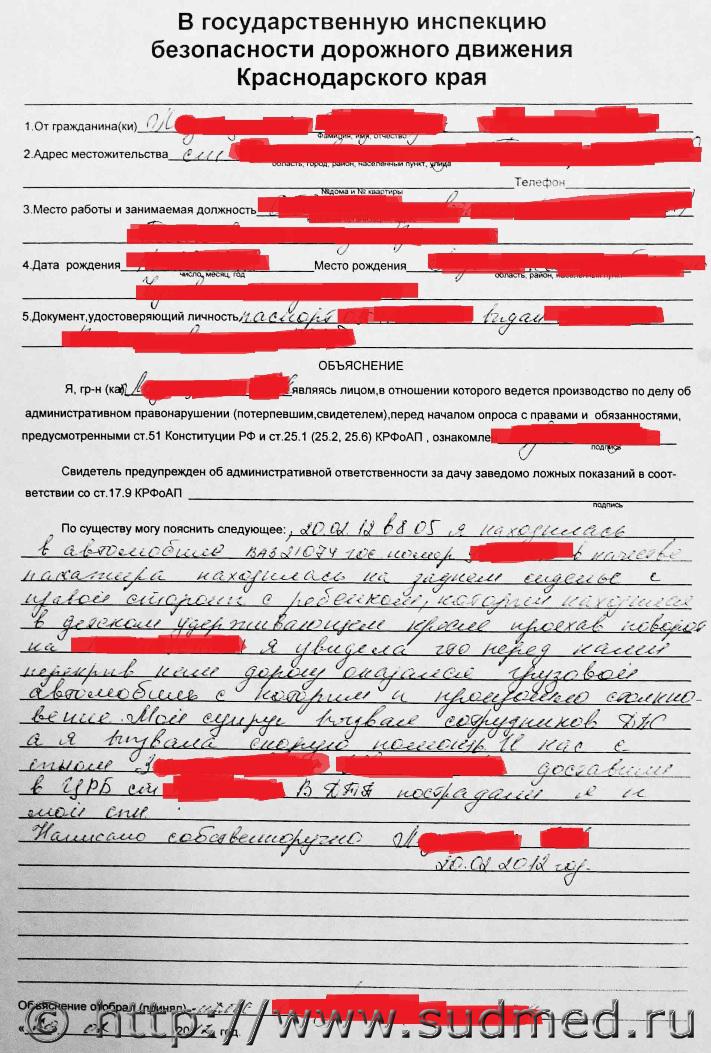 В государственную инспекцию
безопасности дорожного движения
Краснодарского края
1.От гражданина(ки)
Фамилия, имя, отчество
2.Адрес местожительства
область, город, район, населенный пункт, улица
Телефон
№дома и № квартиры
3.Место работы и занимаемая должность
4.Дата рождения Место рождения
число, месяц, год область, район, населенный пункт
5.Документ,удостоверяющий личность паспорт выдан
ОБЪЯСНЕНИЕ
Я, гр-н (ка) являясь лицом,в отношении которого ведется производство по делу об
административном правонарушении (потерпевшим,свидетелем),перед началом опроса с правами и обязанностями,
предусмотренными ст.51 Конституции РФ и ст.25.1 (25.2, 25.6) КРФоАП , ознакомле
подпись
Свидетель предупрежден об административной ответственности за дачу заведомо ложных показаний в соот-
ветствии со ст.17.9 КРФоАП
подпись
По существу могу пояснить следующее: 20.02.12 в 8 05 я находилась
в автомобиле ВАЗ 21074 гос номер в качестве
пассажира находилась на заднем сиденье с
правой стороны с ребенком, который находился
в детском удерживающем кресле проехав поворот
на Я увидела что перед нами
перекрыв нам дорогу оказался грузовой
автомобиль с которым и произошло столкно-
вение. Мой супруг вызвал сотрудников ДПС
а я вызвала скорую помощь. И нас с
сыном доставили
в ЦРБ ст. В ДТП пострадали я и
мой сын
Написано собственноручно
20.02.2012 год.
Объяснение отобрал (принял)
« 20 год.
© http://www.sudmed.ru